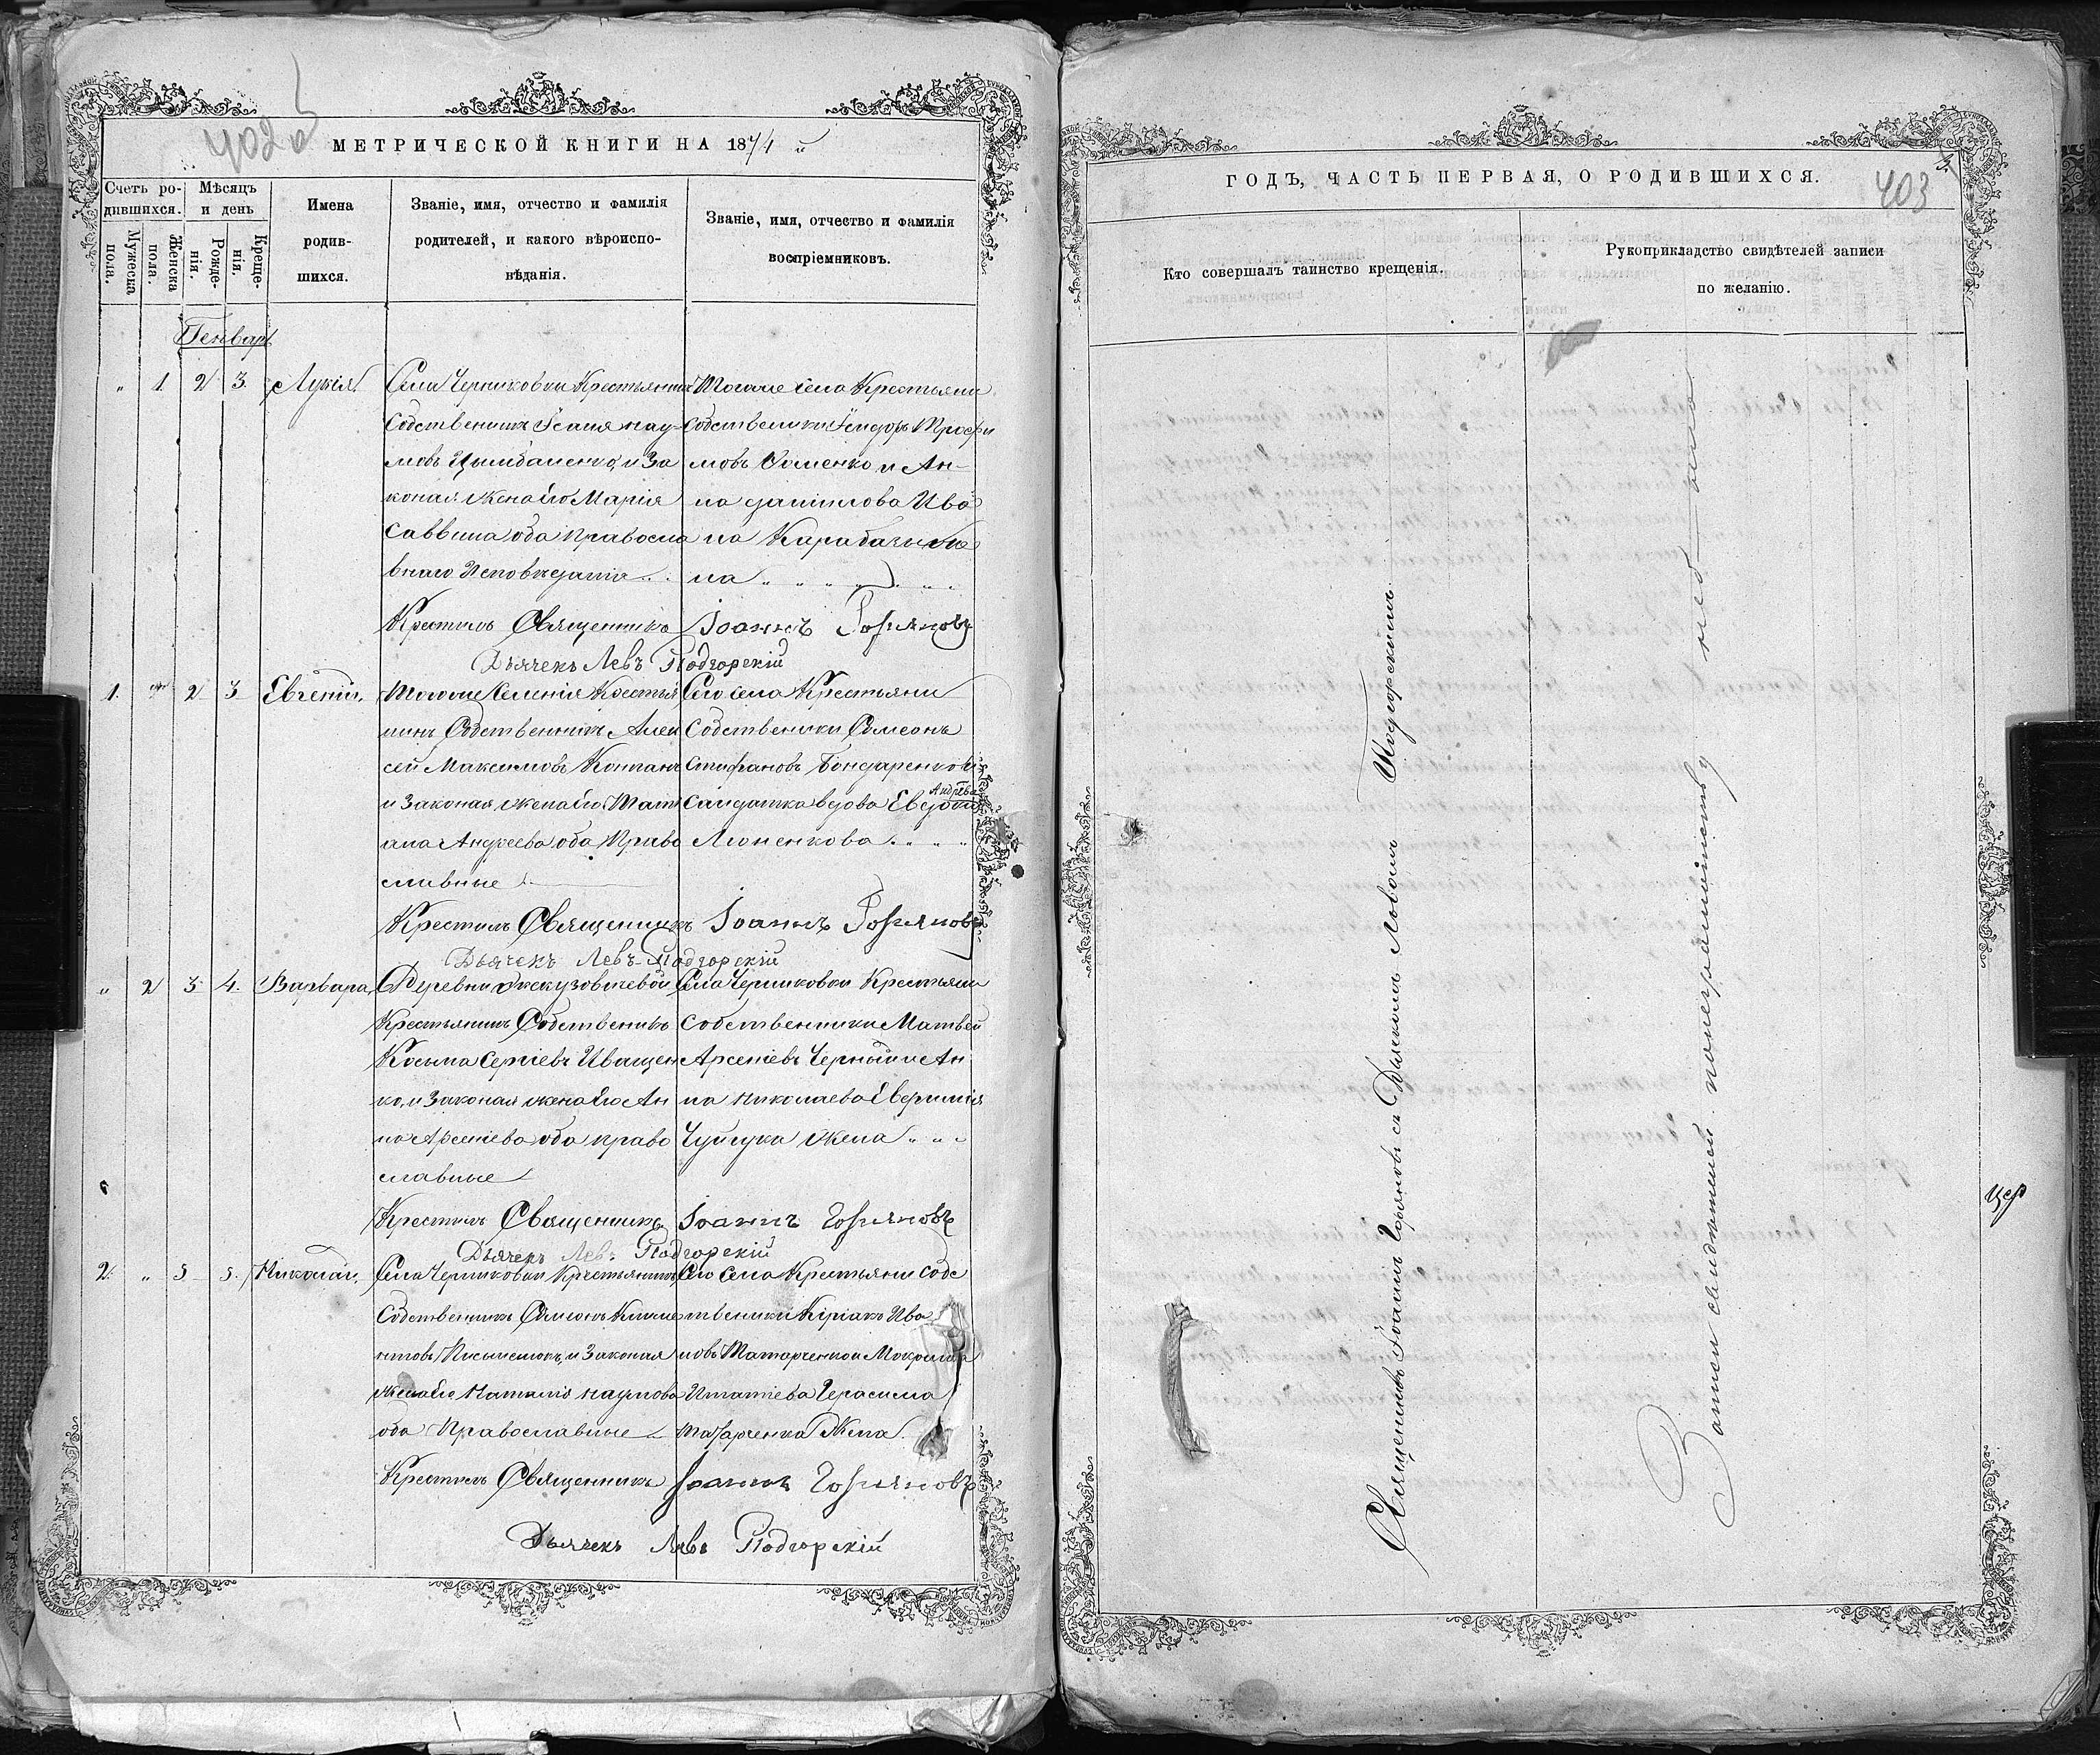 402 об
МЕТРИЧЕСКОЙ КНИГИ НА 1874 й
Счетъ ро-
дившихся.
Мужеска
пола.
Женска
пола.
Мѣсяцъ
и день
Рожде-
нія.
Креще-
нія.
Имена
родив-
шихся.
Званіе, имя, отчество и фамилія
родителей, и какого вѣроиспо-
вѣданія.
Званіе, имя, отчество и фамилія
воспріемниковъ.
Генварь
" 1. 2 3. Лукія.
Села Черниковки Крестьянинъ
Собственникъ Исаія Нау-
мовъ Цымбаленко, и За
коная жена его Марія
Саввина оба Правосла
внаго Исповѣданія
Тогоже села Крестьяни
Собственики Исидоръ Трофи
мовъ Фоменко и Ан-
на Даніилова Ива
на
на " " " "
Крестилъ Священникъ Іоаннъ Горяновъ
Дьячекъ Левъ Подгорскій
1. " 2 3 Евгеній.
Тогоже Селенія Крестья
нинъ Собственникъ Алек
сей Максимовъ
и Законая жена его Тать
яна Андреева оба Право
славные
Сего села Крестьяни
Собственики Симеонъ
Стефановъ Бондаренковъ
Андрѣева
Салдатка вдова Евдокия
" " "
Крестилъ Священникъ Іоаннъ Горяновъ
Дьячекъ Левъ Подгорскій
" 2 3 4. Варвара,
Деревни
Крестьянинъ Собственикъ
Косьма Сергіевъ Иващен
ко, и Законая жена его Ан
на Арсеніева оба право
славные
Села Черниковки Крестьяни
Собственники Матвей
Арсеніевъ Черный и Ан
на Николаева Евфимія
жена " " "
Крестилъ Священникъ Іоаннъ Горяновъ
Дьячекъ Левъ Подгорскій
2. " 5 5. Николай,
Села Черниковки Крестьянинъ
Собственникъ Симеонъ Климе
нтовъ и Законая
жена его Наталія Наумова
оба Православные
Сего Села Крестьяни Собс
твеники Киріакъ Ива
новъ Татарченко и Мокрина
Игнатіева Герасима
Татарченка Жена.
Крестилъ Священникъ Іоаннъ Горяновъ
Дьячекъ Левъ Подгорскій
ГОДЪ, ЧАСТЬ ПЕРВАЯ, О РОДИВШИХСЯ.
403
Кто совершалъ таинство крещенія.
Рукоприкладство свидѣтелей записи
по желанію.
Священникъ Іоаннъ Горяновъ съ Дьячкомъ Львомъ Подгорскимъ
Записи свидѣтелей по неграмотству нѣтъ